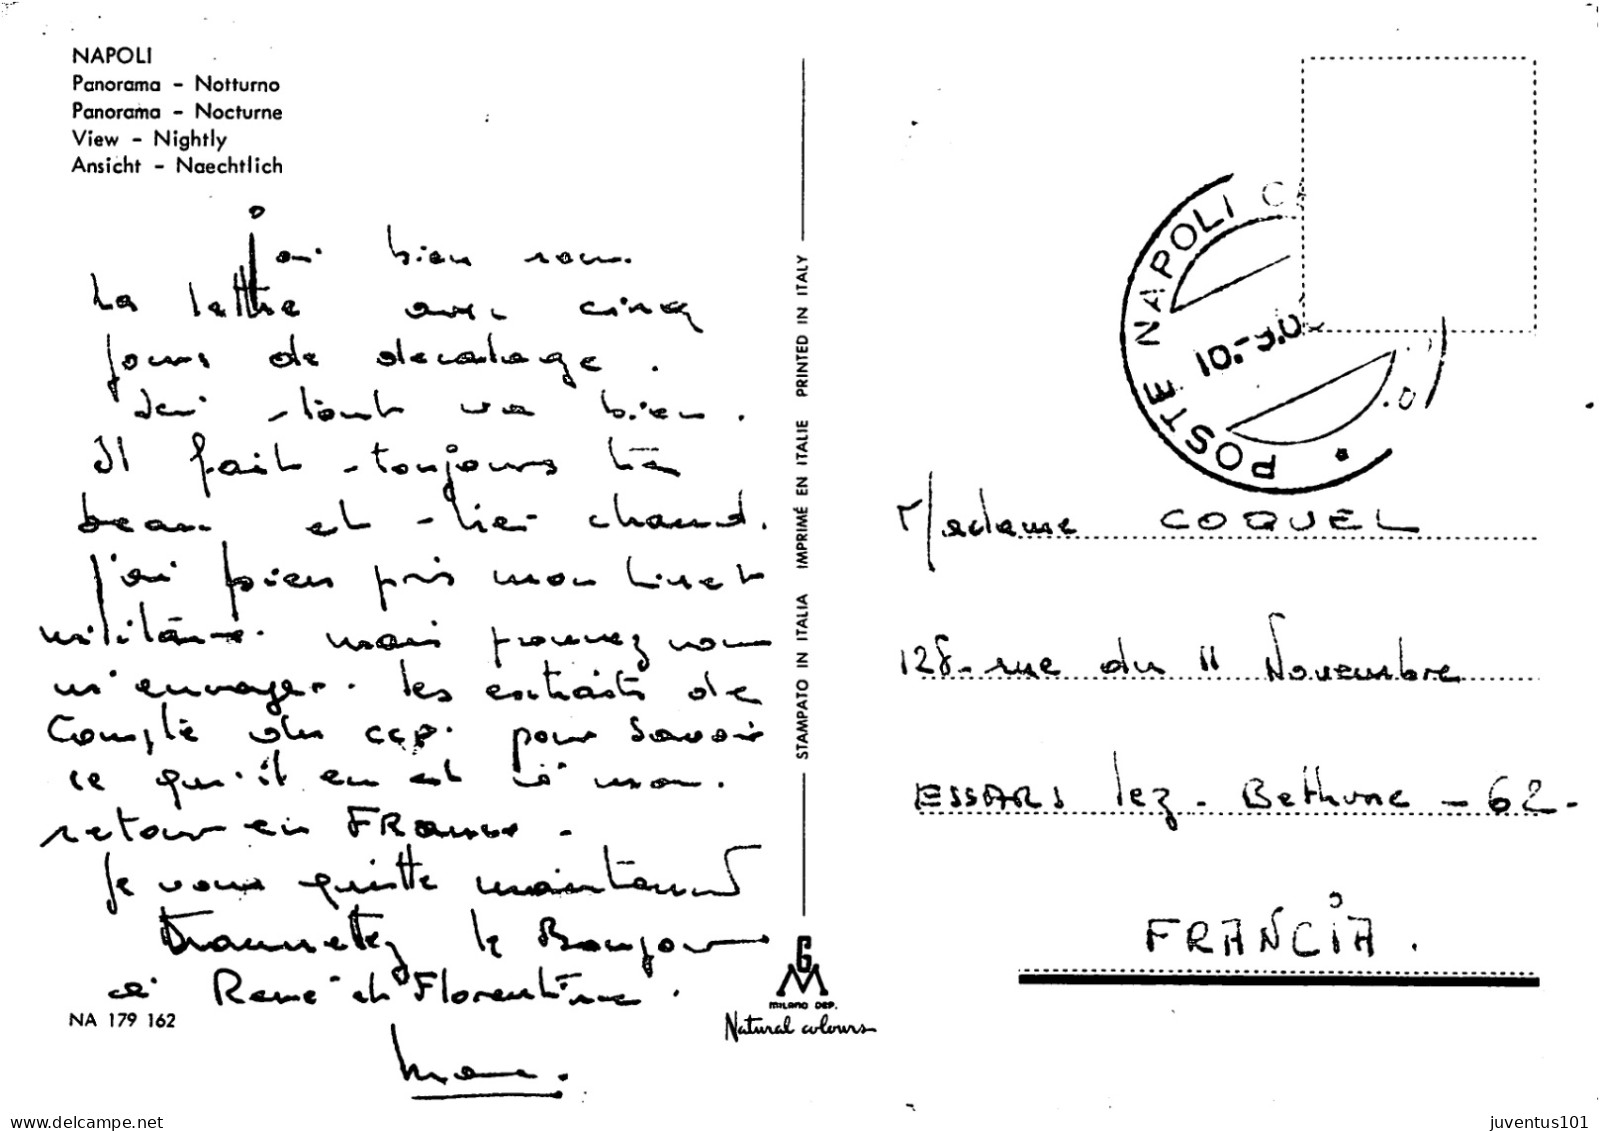 NAPOLI
Panorama - Notturno
Panorama - Nocturne
View - Nightly
Ansicht - Naechtlich
j'ai bien reçu
la lettre avec cinq
jours de decalage.
Ici tout va bien.
Il fait toujours très
beau et très chaud.
J'ai bien pris mon livret
militaire. mais pouvez vous
m'envoyer. les extraits de
Compte du ccp. pour savoir
ce qu'il en est à mon.
retour en FRance.
Je vous quitte maintenant
Transmettez le Bonjour
à René et Florentine.
Marc.
NA 179 162
STAMPATO IN ITALIA IMPRIMÉ EN ITALIE PRINTED IN ITALY
MILANO DEP.
Natural colours
POSTE NAPOLI
Madame COQUEL
128 - rue du 11 Novembre
ESSARS lez - Bethune - 62 -
FRANCIA.
Delcampe.net
juventus101